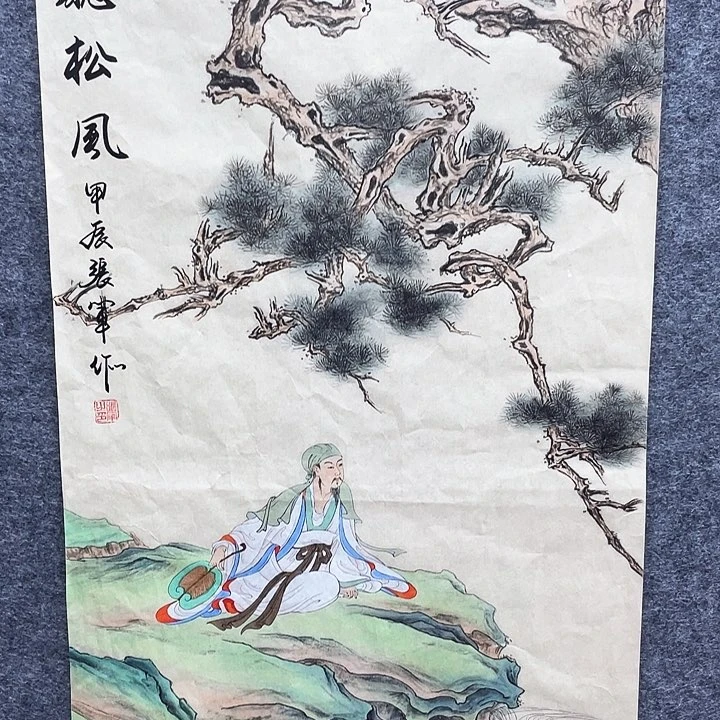 松風
甲辰張軍作